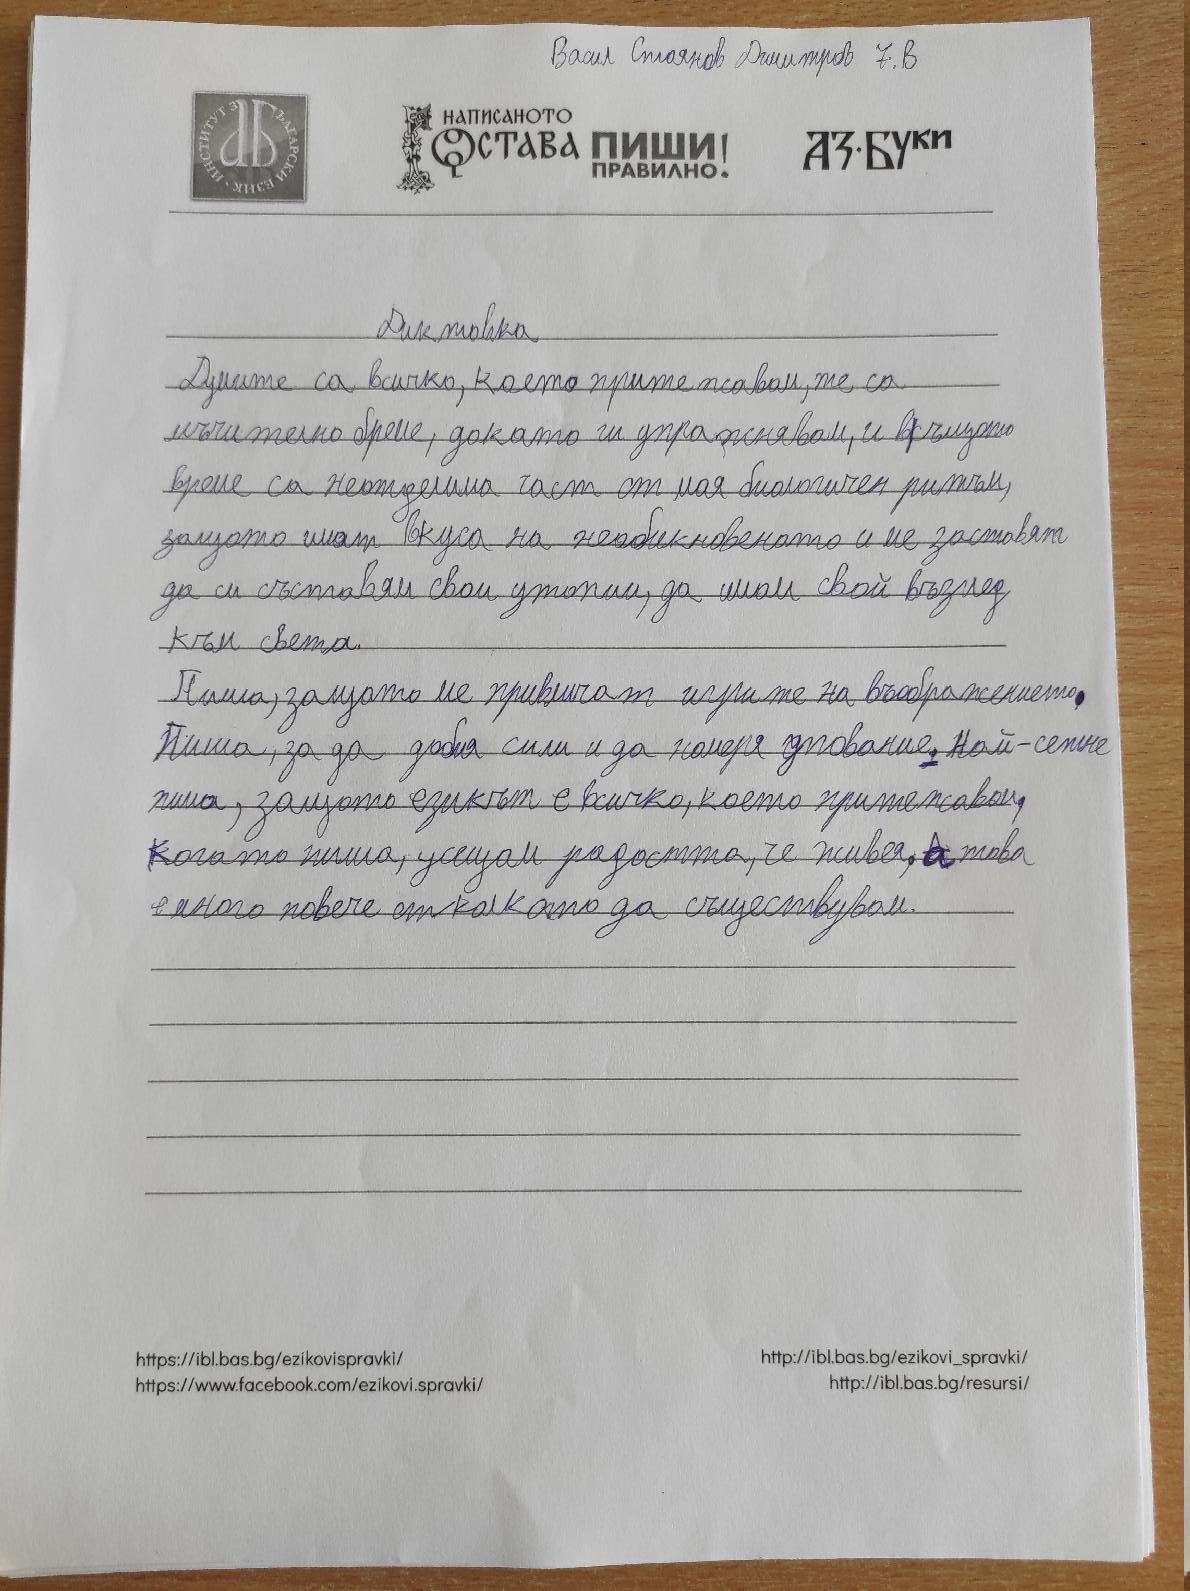 Васил Стоянов Димитров 7.В
ИНСТИТУТ ЗА БЪЛГАРСКИ ЕЗИК
НАПИСАНОТО
ОСТАВА ПИШИ
ПРАВИЛНО!
АЗ·БУКИ
Диктовка
Думите са всичко, което притежавам, те са
мъчително бреме, докато ги упражнявам, и в същото
време са неотделима част от моя биологичен ритъм,
защото имат вкуса на необикновеното и ме заставят
да си съставям свои утопии, да имам свой възглед
към света.
Пиша, защото ме привличат игрите на въображението.
Пиша, за да добия сили и да намеря упование. Най-сетне
пиша, защото езикът е всичко, което притежавам.
Когато пиша, усещам радостта, че живея. А това
е много повече отколкото да съществувам.
https://ibl.bas.bg/ezikovispravki/
https://www.facebook.com/ezikovi.spravki/
http://ibl.bas.bg/ezikovi_spravki/
http://ibl.bas.bg/resursi/